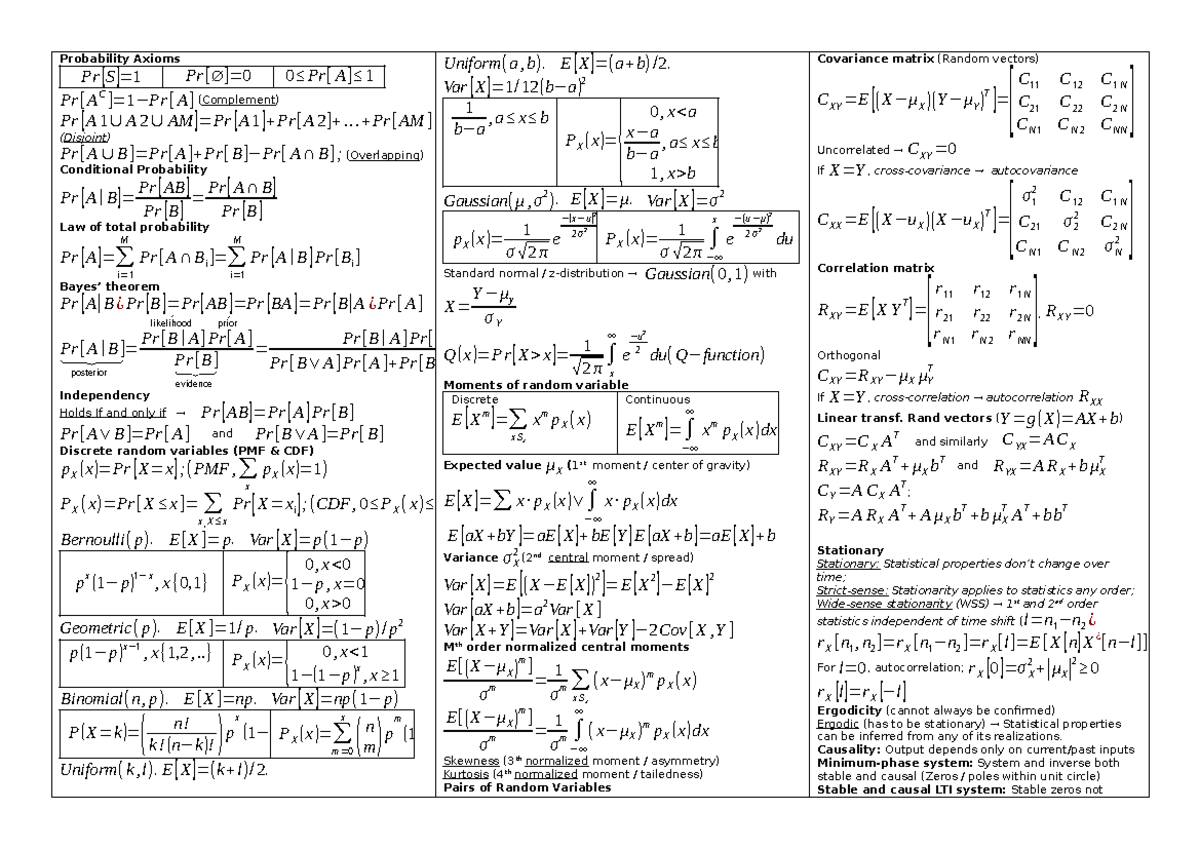 Probability Axioms
Pr[S]=1 Pr[∅]=0 0≤Pr[A]≤1
Pr[A^C]=1−Pr[A] (Complement)
Pr[A1∪A2∪AM]=Pr[A1]+Pr[A2]+…+Pr[AM]
(Disjoint)
Pr[A∪B]=Pr[A]+Pr[B]−Pr[A∩B]; (Overlapping)
Conditional Probability
Pr[A|B]=Pr[AB]/Pr[B]=Pr[A∩B]/Pr[B]
Law of total probability
Pr[A]=∑_{i=1}^{M} Pr[A∩B_i]=∑_{i=1}^{M} Pr[A|B]Pr[B_i]
Bayes’ theorem
Pr[A|B¿Pr[B]=Pr[AB]=Pr[BA]=Pr[B|A¿Pr[A]
likelihood prior
Pr[A|B]=Pr[B|A]Pr[A]/Pr[B]=Pr[B|A]Pr[/Pr[B∨A]Pr[A]+Pr[B
posterior evidence
Independency
Holds If and only if → Pr[AB]=Pr[A]Pr[B]
Pr[A∨B]=Pr[A] and Pr[B∨A]=Pr[B]
Discrete random variables (PMF & CDF)
p_X(x)=Pr[X=x];(PMF,∑_x p_X(x)=1)
P_X(x)=Pr[X≤x]=∑_{x,X≤x} Pr[X=x_i];(CDF,0≤P_X(x)≤
Bernoulli(p). E[X]=p. Var[X]=p(1−p)
p^x(1−p)^{1−x},x{0,1} P_X(x)={0,x<0
1−p,x=0
0,x>0
Geometric(p). E[X]=1/p. Var[X]=(1−p)/p^2
p(1−p)^{x−1},x{1,2,..} P_X(x)={0,x<1
1−(1−p)^x,x≥1
Binomial(n,p). E[X]=np. Var[X]=np(1−p)
P(X=k)=(n!/k!(n−k)!)p^x(1− P_X(x)=∑_{m=0}^{x}(n m)p^m(1
Uniform(k,l). E[X]=(k+l)/2.
Uniform(a,b). E[X]=(a+b)/2.
Var[X]=1/12(b−a)^2
1/(b−a),a≤x≤b P_X(x)={0,x<a
(x−a)/(b−a),a≤x≤b
1,x>b
Gaussian(μ,σ^2). E[X]=μ. Var[X]=σ^2
p_X(x)=1/(σ√2π) e^{−(x−u)^2/2σ^2} P_X(x)=1/(σ√2π) ∫_{−∞}^{x} e^{−(u−μ)^2/2σ^2} du
Standard normal / z-distribution → Gaussian(0,1) with
X=(Y−μ_y)/σ_Y
Q(x)=Pr[X>x]=1/√2π ∫_{x}^{∞} e^{−u^2/2} du(Q−function)
Moments of random variable
Discrete Continuous
E[X^m]=∑_{xS_x} x^m p_X(x) E[X^m]=∫_{−∞}^{∞} x^m p_X(x)dx
Expected value μ_X (1st moment / center of gravity)
E[X]=∑x·p_X(x)∨∫_{−∞}^{∞} x·p_X(x)dx
E[aX+bY]=aE[X]+bE[Y]E[aX+b]=aE[X]+b
Variance σ_X^2 (2nd central moment / spread)
Var[X]=E[(X−E[X])^2]=E[X^2]−E[X]^2
Var[aX+b]=a^2Var[X]
Var[X+Y]=Var[X]+Var[Y]−2Cov[X,Y]
Mth order normalized central moments
E[(X−μ_X)^m]/σ^m=1/σ^m ∑_{xS_x}(x−μ_X)^m p_X(x)
E[(X−μ_X)^m]/σ^m=1/σ^m ∫_{−∞}^{∞}(x−μ_X)^m p_X(x)dx
Skewness (3th normalized moment / asymmetry)
Kurtosis (4th normalized moment / tailedness)
Pairs of Random Variables
Covariance matrix (Random vectors)
C_XY=E[(X−μ_X)(Y−μ_Y)^T]=[C_11 C_12 C_1N
C_21 C_22 C_2N
C_N1 C_N2 C_NN]
Uncorrelated → C_XY=0
If X=Y, cross-covariance → autocovariance
C_XX=E[(X−u_X)(X−u_X)^T]=[σ_1^2 C_12 C_1N
C_21 σ_2^2 C_2N
C_N1 C_N2 σ_N^2]
Correlation matrix
R_XY=E[XY^T]=[r_11 r_12 r_1N
r_21 r_22 r_2N
r_N1 r_N2 r_NN]. R_XY=0
Orthogonal
C_XY=R_XY−μ_X μ_Y^T
If X=Y, cross-correlation → autocorrelation R_XX
Linear transf. Rand vectors (Y=g(X)=AX+b)
C_XY=C_X A^T and similarly C_YX=AC_X
R_XY=R_X A^T+μ_X b^T and R_YX=AR_X+bμ_X^T
C_Y=AC_X A^T;
R_Y=AR_X A^T+Aμ_X b^T+bμ_X^T A^T+bb^T
Stationary
Stationary: Statistical properties don’t change over
time;
Strict-sense: Stationarity applies to statistics any order;
Wide-sense stationarity (WSS) → 1st and 2nd order
statistics independent of time shift (l=n_1−n_2¿
r_X[n_1,n_2]=r_X[n_1−n_2]=r_X[l]=E[X[n]X^¿[n−l]]
For l=0, autocorrelation; r_X[0]=σ_X^2+|μ_X|^2≥0
r_X[l]=r_X[−l]
Ergodicity (cannot always be confirmed)
Ergodic (has to be stationary) → Statistical properties
can be inferred from any of its realizations.
Causality: Output depends only on current/past inputs
Minimum-phase system: System and inverse both
stable and causal (Zeros / poles within unit circle)
Stable and causal LTI system: Stable zeros not